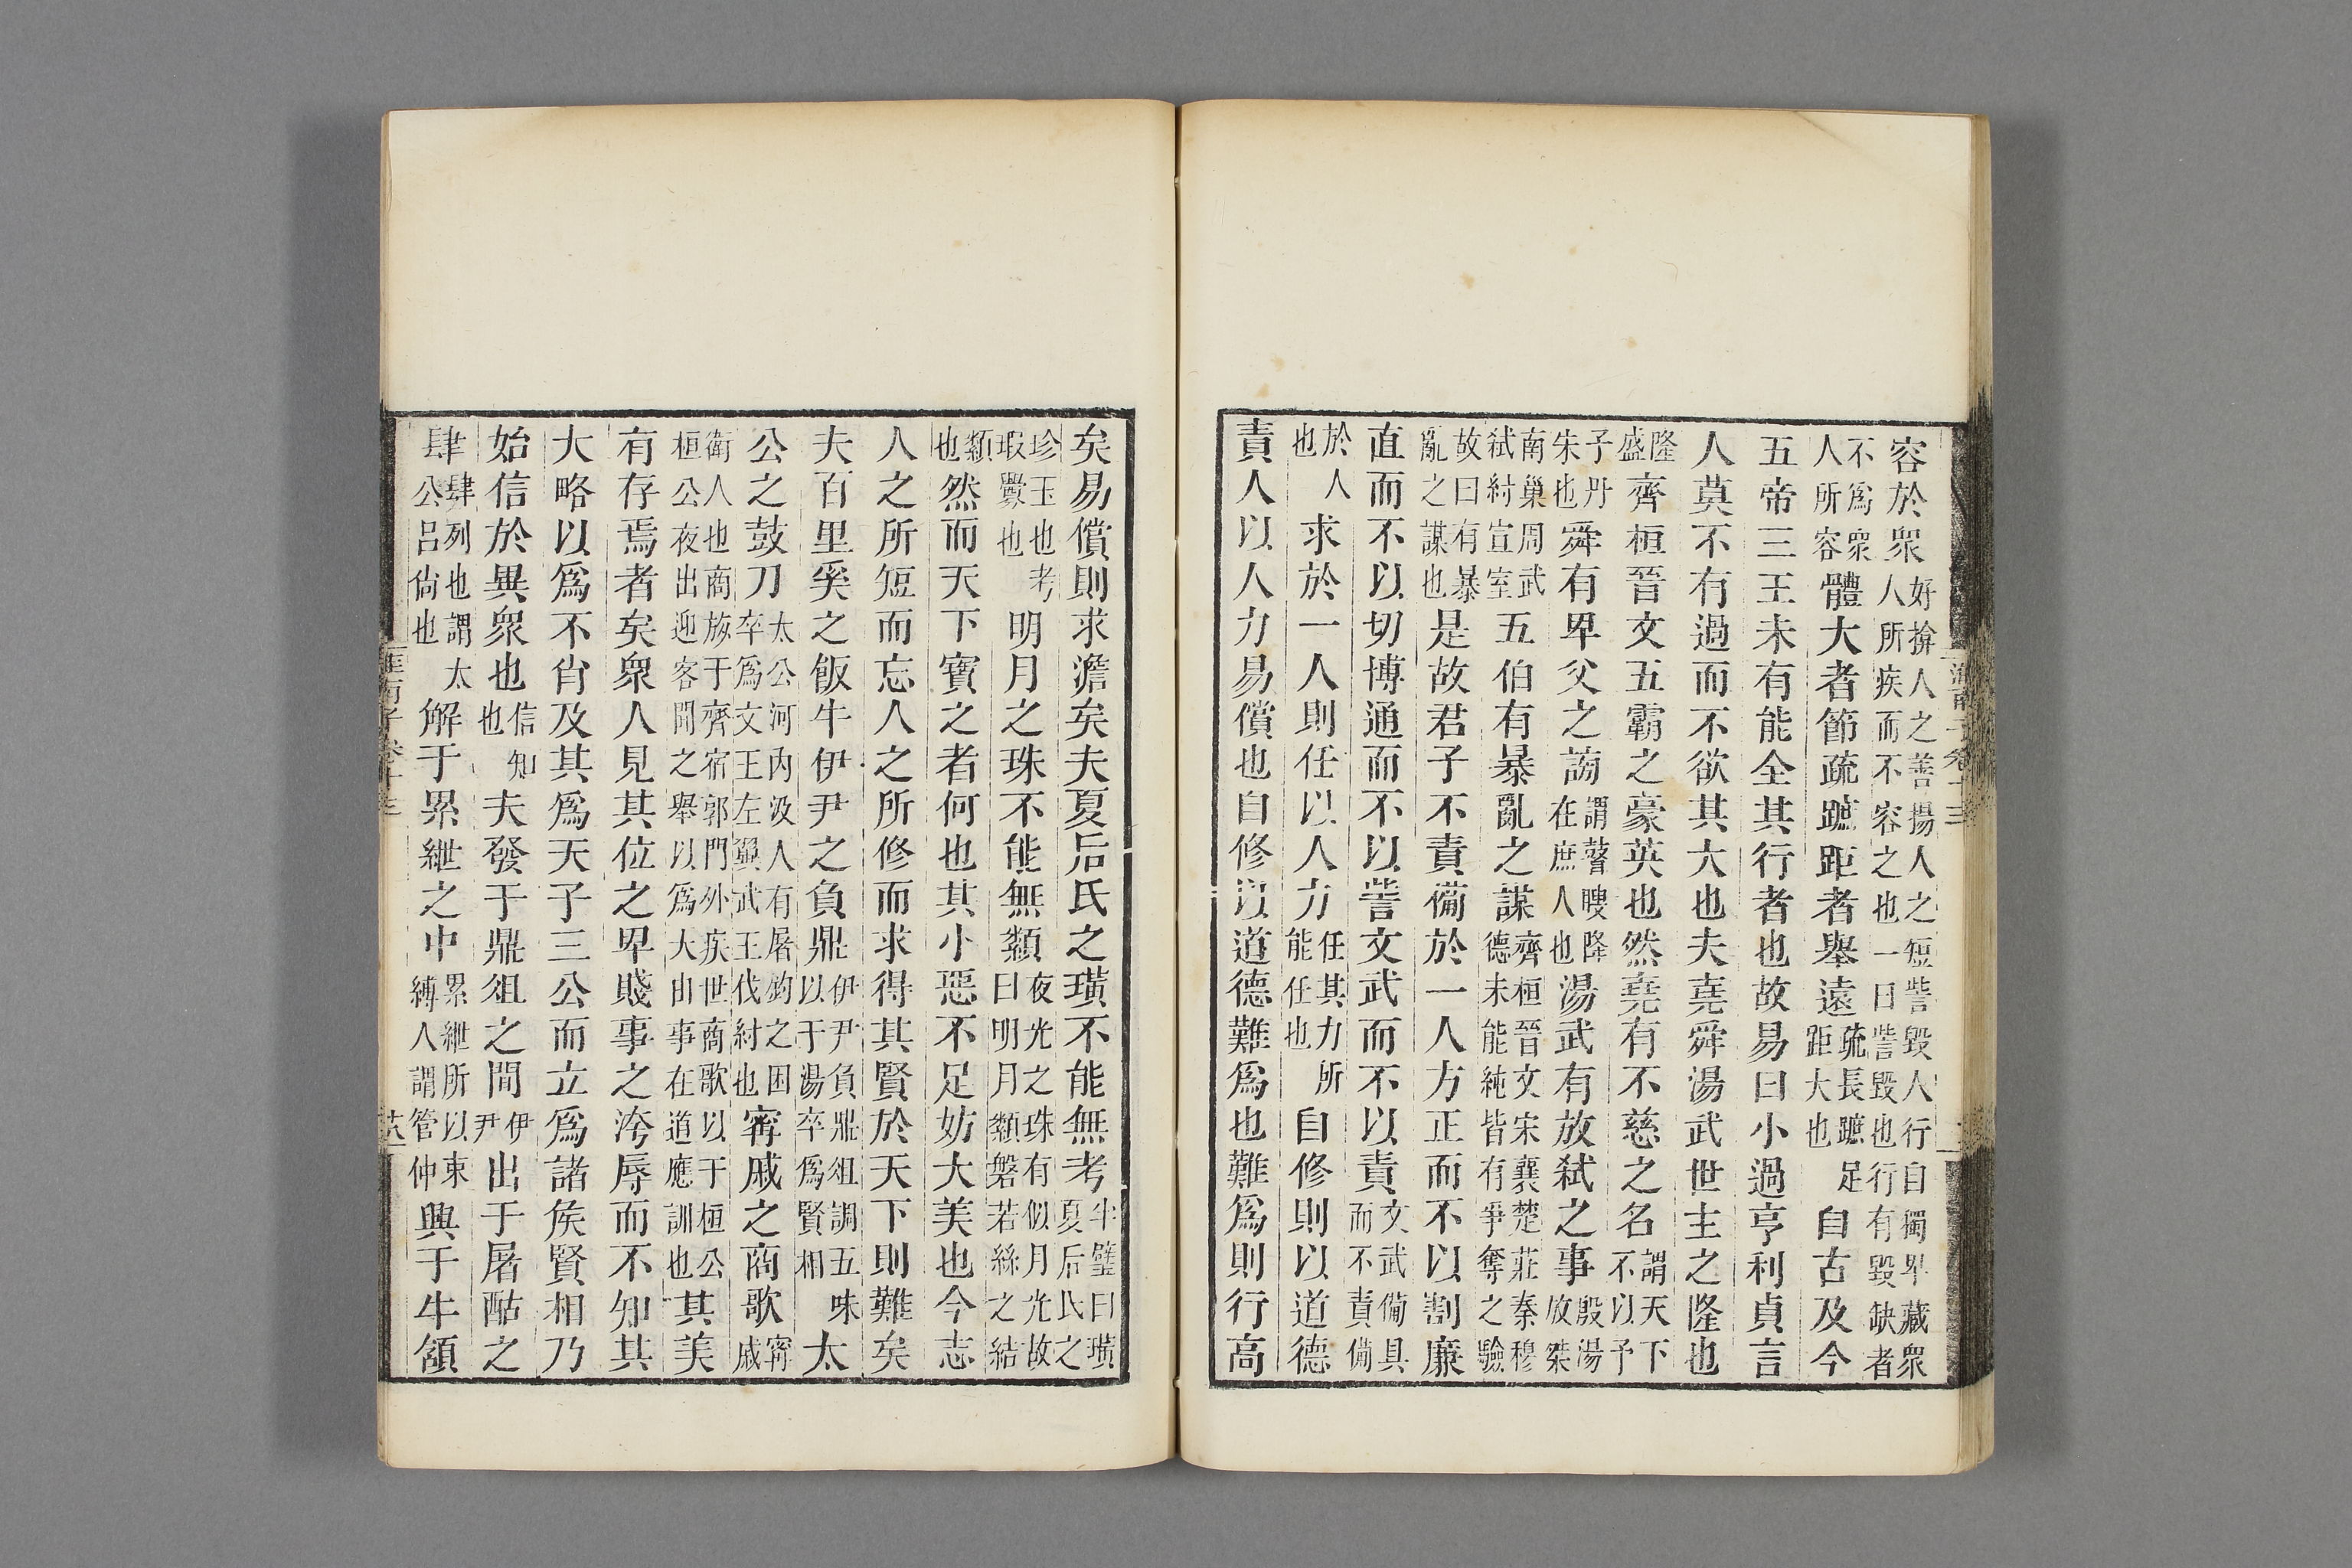 容於衆好揜人之善揚人之短訾毀人行自獨卑藏衆人所疾而不容之也一曰訾毀也行有毀缺者
不爲衆人所容體大者節疏蹠距者舉遠䟽長蹠足距大也自古及今
五帝三王未有能全其行者也故易曰小過亨利貞言
人莫不有過而不欲其大也夫堯舜湯武世主之隆也
隆盛齊桓晉文五霸之豪英也然堯有不慈之名謂天下不以予
子丹朱也舜有卑父之謗謂瞽瞍降在庶人也湯武有放弑之事殷湯放桀
南巢周武弑紂宣室五伯有暴亂之謀齊桓晉文宋襄楚莊秦穆德未能純皆有爭奪之驗
故曰有暴亂之謀也是故君子不責備於一人方正而不以割廉
直而不以切博通而不以訾文武而不以責文武備具而不責備
於人也求於一人則任以人力任其力所能任也自修則以道德
責人以人力易償也自修以道德難爲也難爲則行高
矣易償則求澹矣夫夏后氏之璜不能無考半璧曰璜夏后氏之
珍玉也考瑕釁也明月之珠不能無纇夜光之珠有似月光故曰明月纇磐若絲之結
纇也然而天下寶之者何也其小惡不足妨大美也今志
人之所短而忘人之所修而求得其賢於天下則難矣
夫百里奚之飯牛伊尹之負鼎伊尹負鼎俎調五味以于湯卒爲賢相太
公之鼓刀太公河內汲人有屠釣之困卒爲文王左翼武王伐紂也甯戚之商歌甯戚
衛人也商旅于齊宿郭門外疾世商歌以干桓公桓公夜出迎客聞之舉以爲大由事在道應訓也其美
有存焉者矣衆人見其位之卑賤事之洿辱而不知其
大略以爲不肖及其爲天子三公而立爲諸侯賢相乃
始信於異衆也信知也夫發于鼎俎之閒伊尹出于屠酤之
肆肆列也謂太公呂尙也解于累紲之中累紲所以束縛人謂管仲興于牛頷
淮南子卷十三
十六